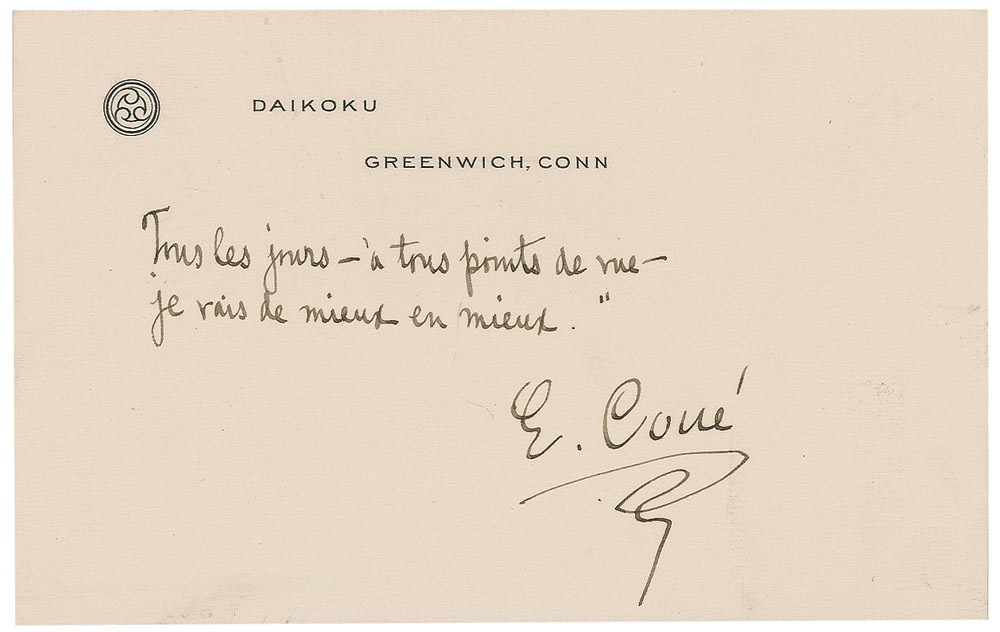 DAIKOKU
GREENWICH, CONN
Tous les jours – à tous points de vue –
je vais de mieux en mieux. "
E. Coué